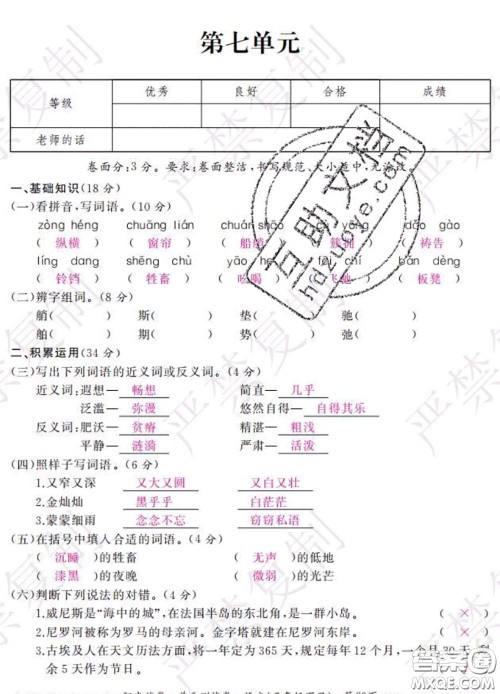 第七单元
等级 优秀 良好 合格 成绩
老师的话
卷面分:3分。要求:卷面整洁,书写规范、大小适中,无涂改。
一、基础知识(18分)
(一)看拼音,写词语。(10分)
zòng héng chuāng lián chuán shāo dǎo gào
(纵横) (窗帘) (船艄) (簇拥) (祷告)
líng dang shēng chù yāo he fēi chí bǎn dèng
(铃铛) (牲畜) (吆喝) (飞驰) (板凳)
(二)辨字组词。(8分)
艄( ) 斯( ) 垫( ) 驰( )
舶( ) 期( ) 垫( ) 弛( )
二、积累运用(34分)
(三)写出下列词语的近义词或反义词。(4分)
近义词:遐想—畅想 简直—几乎
泛滥—弥漫 悠然自得—自得其乐
反义词:肥沃—贫瘠 精湛—粗浅
平静—涟漪 严肃—活泼
(四)照样子写词语。(6分)
1.又窄又深 又大又圆 又白又壮
2.金灿灿 黑乎乎 白茫茫
3.蒙蒙细雨 念念不忘 窃窃私语
(五)在括号中填入合适的词语。(4分)
(沉睡)的牲畜 (无声)的低地
(漆黑)的夜晚 (微弱)的光芒
(六)判断下列说法的对错。(4分)
1.威尼斯是“海中的城”,在法国半岛的东北角,是一群小岛。 (×)
2.尼罗河被称为罗马的母亲河。金字塔就建在尼罗河东岸。 (×)
3.古埃及人在天文历法方面,将一年定为365天,规定每年12个月,一个月30天,剩
余5天作为节日。 (√)
互助文档
hdzuoye.com
严禁复制
答案圈
MXQE.COM